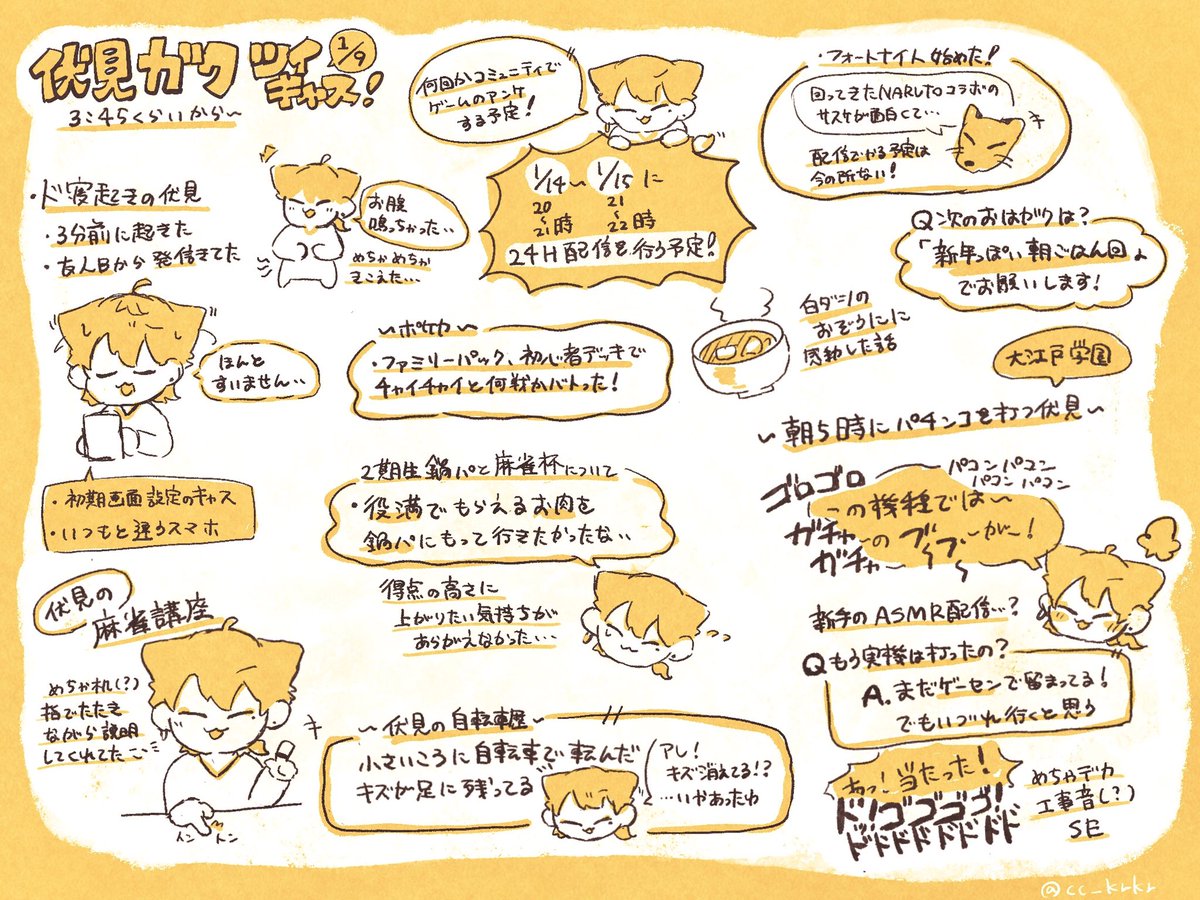 伏見ガク ツイキャス! 1/9
3:45くらいから〜
・ド寝起きの伏見
・3分前に起きた
・友人Bから発信きてた
お腹
鳴っちゃった…
めちゃめちゃ
きこえた…
ほんと
すいません…
・初期画面設定のキャス
・いつもと違うスマホ
伏見の
麻雀講座
めちゃ机(?)
指でたたき
ながら説明
してくれてた
トン トン
何回かコミュニティで
ゲームのアンケ
する予定!
1/14〜1/15に
20〜21時 21〜22時
24H配信を行う予定!
〜ポケカ〜
・ファミリーパック、初心者デッキで
チャイチャイと何戦かバトった!
白ダシの
おぞうにに
感動した話
2期生鍋パと麻雀杯について
・役満でもらえるお肉を
鍋パにもって行きたかったな…
得点の高さに
上がりたい気持ちが
あらがえなかった…
〜伏見の自転車屋〜
小さいころに自転車で転んだ
キズが足に残ってる
アレ!
キズ消えてる!?
…いやあったわ
・フォートナイト始めた!
回ってきたNARUTOコラボの
サスケが面白くて…
配信でやる予定は
今の所ない!
Q次のおはガクは?
「新年っぽい朝ごはん回」
でお願いします!
大江戸学園
〜朝5時にパチンコを打つ伏見〜
ゴロゴロ
パコンパコン
パコンパコン
この機種では〜
ガチャ〜のブーブーが〜!
ガチャ〜
新手のASMR配信…?
Qもう実機は打ったの?
A.まだゲーセンで留まってる!
でもいづれ行くと思う
あっ!当たった!
ド!ゴゴゴゴ!
ドドドドドドド
めちゃデカ
工事音(?)
SE
@cc_krkr